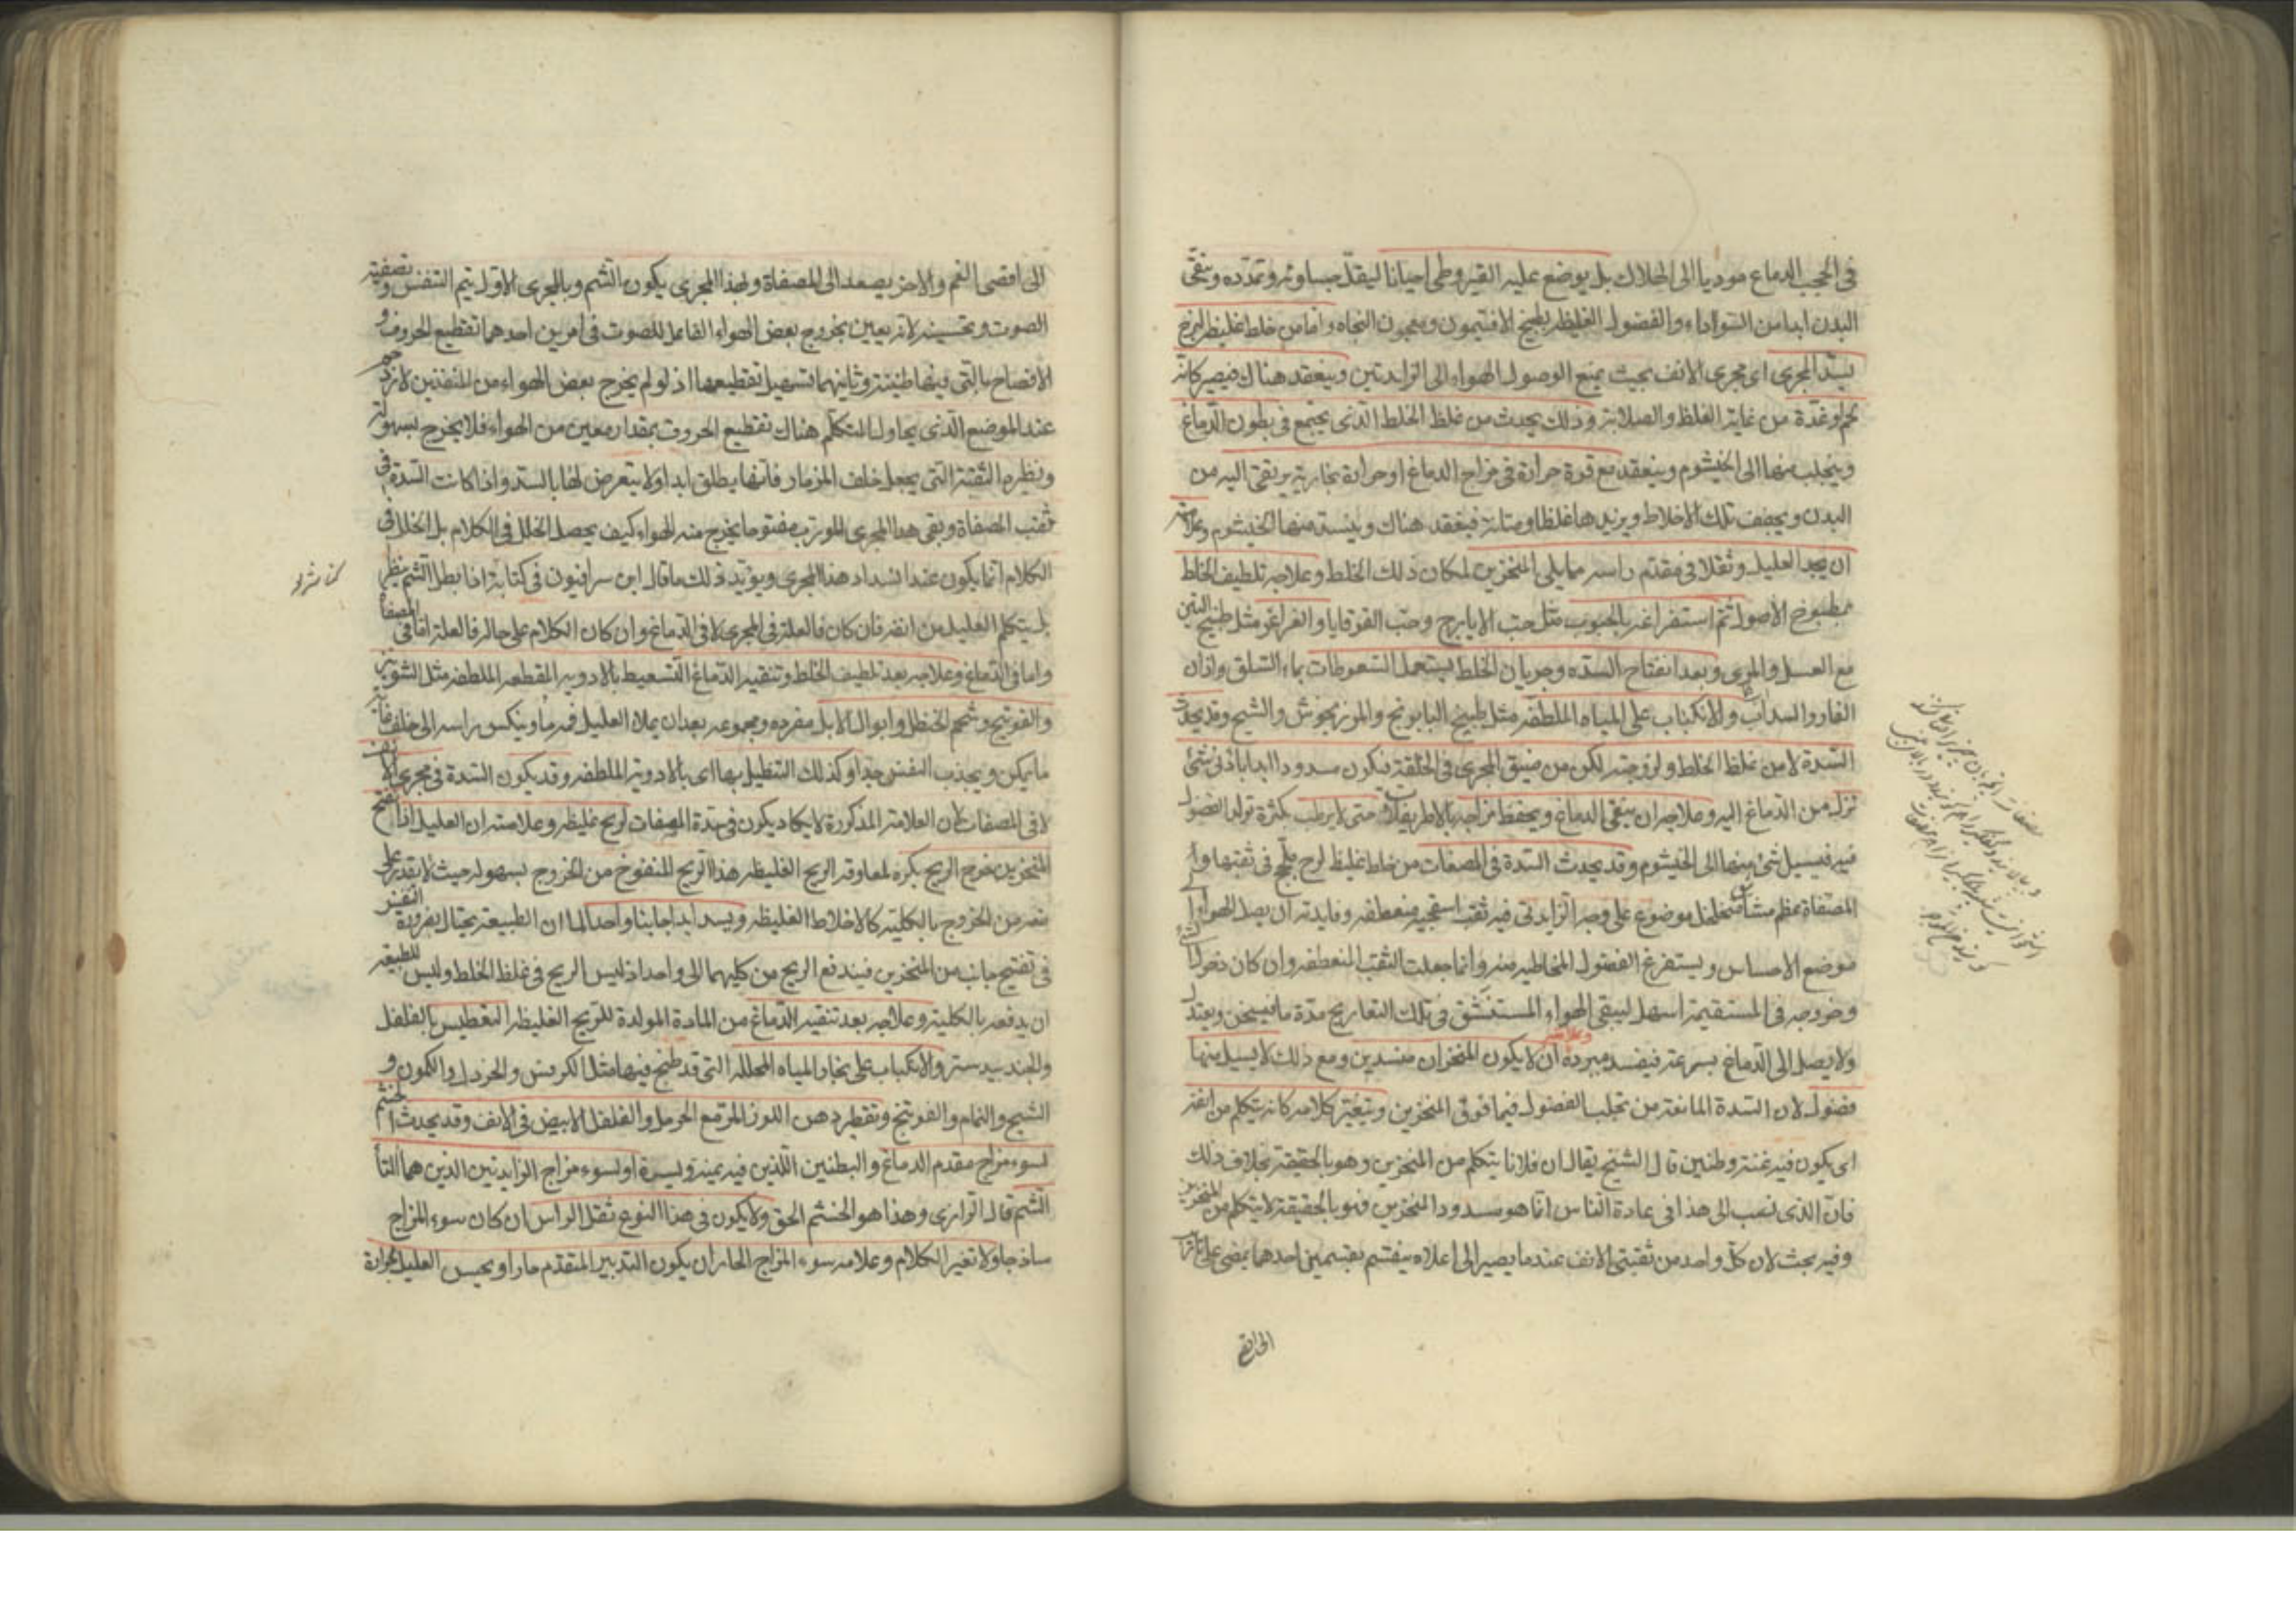 في الحجب الدماغ موديا الى الهلاك بل يوضع عليه القيروطى احيانا ليقل جساوته وتمدده وينقى
البدن ابدا من السوداء والفضول الغليظه بطبيخ الافتيمون ومعجون النجاه واما من خلط غليظ لزج
يسد المجرى اى مجرى الانف بحيث يمنع الوصول الهواء الى الزايدتين وينعقد هناك فيصير كانه
لحم او غدة من غاية الغلظ والصلابة وذلك يحدث من غلظ الخلط الذى يجتمع فى بطون الدماغ
وينجلب منها الى الخيشوم وينعقد مع قوة حرارة فى مزاج الدماغ او حرارة بخارية يرتقى اليه من
البدن ويجفف تلك الاخلاط ويزيدها غلظا ومتانة فيعقد هناك وينسد منها الخيشوم وعلامته
ان يجد العليل وثقلا فى مقدم راسه مما يلى المنخرين لمكان ذلك الخلط وعلاجه تلطيف الخلط
بمطبوخ الاصول ثم استفراغه بالحبوب مثل حب الايارج وحب القوقايا والغراغر مثل طبيخ التين
مع العسل والمرى وبعد انفتاح السده وجريان الخلط يستعمل السعوطات بماء السلق واذان
الفار والسداب والانكباب على المياه الملطفه مثل طبيخ البابونج والمرزنجوش والشيح وقد يحدث
السدة لا من غلظ الخلط ولزوجته لكن من ضيق المجرى فى الخلقة فيكون مسدودا ابدا باذنى شئ
نزل من الدماغ اليه وعلاجه ان ينقى الدماغ ويحفظ مزاجه بالاطريفلات حتى لا يرطب بكثرة تولد الفضول
فيه فيسيل شئ منها الى الخيشوم وقد يحدث السدة فى المصفات من خلط غليظ لزج يلحج فى ثقبتها و
المصفاة عظم مشاشى متخلخل موضوع على وجه الزايدتى فيه ثقب اسفنجيه منعطفه وفايدته ان يصل الهواء الى
موضع الاحساس ويستفرغ الفضول المخاطيه منه وانما جعلت الثقب المنعطفه وان كان دخول
وخروجه فى المستقيمة اسهل ليبقى الهواء المستنشق فى تلك التعاريج مدة ما فيسخن ويعتدل
ولا يصل الى الدماغ بسرعة فيفسد مبردة وعلامته ان لا يكون المنخران منسدين ومع ذلك لا يسيل منها
فضول لان السدة المانعة من تجلب الفضول فيما فوق المنخرين ويتغير كلامه كانه يتكلم من انفه
اى يكون فيه غنة وطنين قال الشيخ يقال ان فلانا يتكلم من المنخرين وهو بالحقيقة بخلاف ذلك
فان الذى نسب الى هذا فى عادة الناس انما هو مسدود المنخرين فهو بالحقيقة لا يتكلم من المنخرين
وفيه بحث لان كل واحد من ثقبتى الانف عندما يصير الى اعلاه ينقسم بقسمين احدهما يمضى على تاريب
الى اقصى الفم والاخر يصعد الى المصفاة ولهذا المجرى يكون الشم وبالمجرى الاول يتم التنفس وتصفيته
الصوت وتحسينه لانه يعين بخروج بعض الهواء الفاعل للصوت فى امرين احدهما تقطيع الحروف و
الافصاح بالتى فيها طنينة وثانيهما تسهيل تقطيعها اذ لو لم يخرج بعض الهواء من المنفذين لازدحم
عند الموضع الذى يحاول التكلم هناك تقطيع الحروف بمقدار معين من الهواء فلا يخرج بسهولة
ونظيره الثقبة التى يجعل خلف المزمار فانها يطلق ابدا ولا يتعرض لها بالسد واذا كانت السدة فى
ثقب المصفاة وبقى هذا المجرى للورب مفتوحا يخرج منه الهواء كيف يحصل الخلل فى الكلام بل الخلل فى
الكلام انما يكون عند انسداد هذا المجرى ويؤيد ذلك ما قال ابن سرافيون فى كتابة اذا بطل الشم ينظر
بل يتكلم العليل من انفه فان كان فالعلة فى المجرى لا فى الدماغ وان كان الكلام على حاله فالعلة اما فى المصفاة
واما فى الدماغ وعلاجه بعد تلطيف الخلط وتنقيه الدماغ التسعيط بالادويه المقطعه الملطفه مثل الشونيز
والفوتنج وشحم الحنظل وابوال الابل مفرده ومجموعه بعد ان يملا العليل فمه ماء وينكس براسه الى خلف غاية
ما يمكن ويجذب النفس جدا وكذلك التنطيل بها اى بالادوية الملطفه وقد يكون السدة فى مجرى الانف
لا فى المصفات لان العلامة المذكورة لا يكاد يكون فى سدة المصفات لريح غليظه وعلامته ان العليل اذا نفخ
المنخرين خرج الريح بكره لمعاوقه الريح الغليظه هذا الريح المنفوخ من الخروج بسهوله حيث لا يقدر على
منعه من الخروج بالكليه كالاخلاط الغليظه ويسد ابدا جانبا واحدا لما ان الطبيعة يحتال بضرورة التنفس
فى تفتيح جانب من المنخرين فيندفع الريح من كليهما الى واحد اذ ليس الريح فى غلظ الخلط وليس للطبيعه
ان يدفعه بالكلية وعلاجه بعد تنقيه الدماغ من المادة المولدة للريح الغليظه التعطيس بالفلفل
والجندبيدستر والانكباب على بخار المياه المحلله التى قد طبخ فيها مثل الكرفس والخردل والكمون و
الشيح والنمام والفوتنج وتقطير دهن اللوز المر مع الحرمل والفلفل الابيض فى الانف وقد يحدث الخشم
لسوء مزاج مقدم الدماغ والبطنين اللذين فيه يمنة ويسرة او لسوء مزاج الزايدتين الذين هما آلتا
الشم قال الرازى وهذا هو الخشم الحق ولا يكون فى هذا النوع ثقل الراس ان كان سوء المزاج
ساذجا ولا تغير الكلام وعلامه سوء المزاج الحار ان يكون التدبير المتقدم حارا ويحس العليل بحرارة